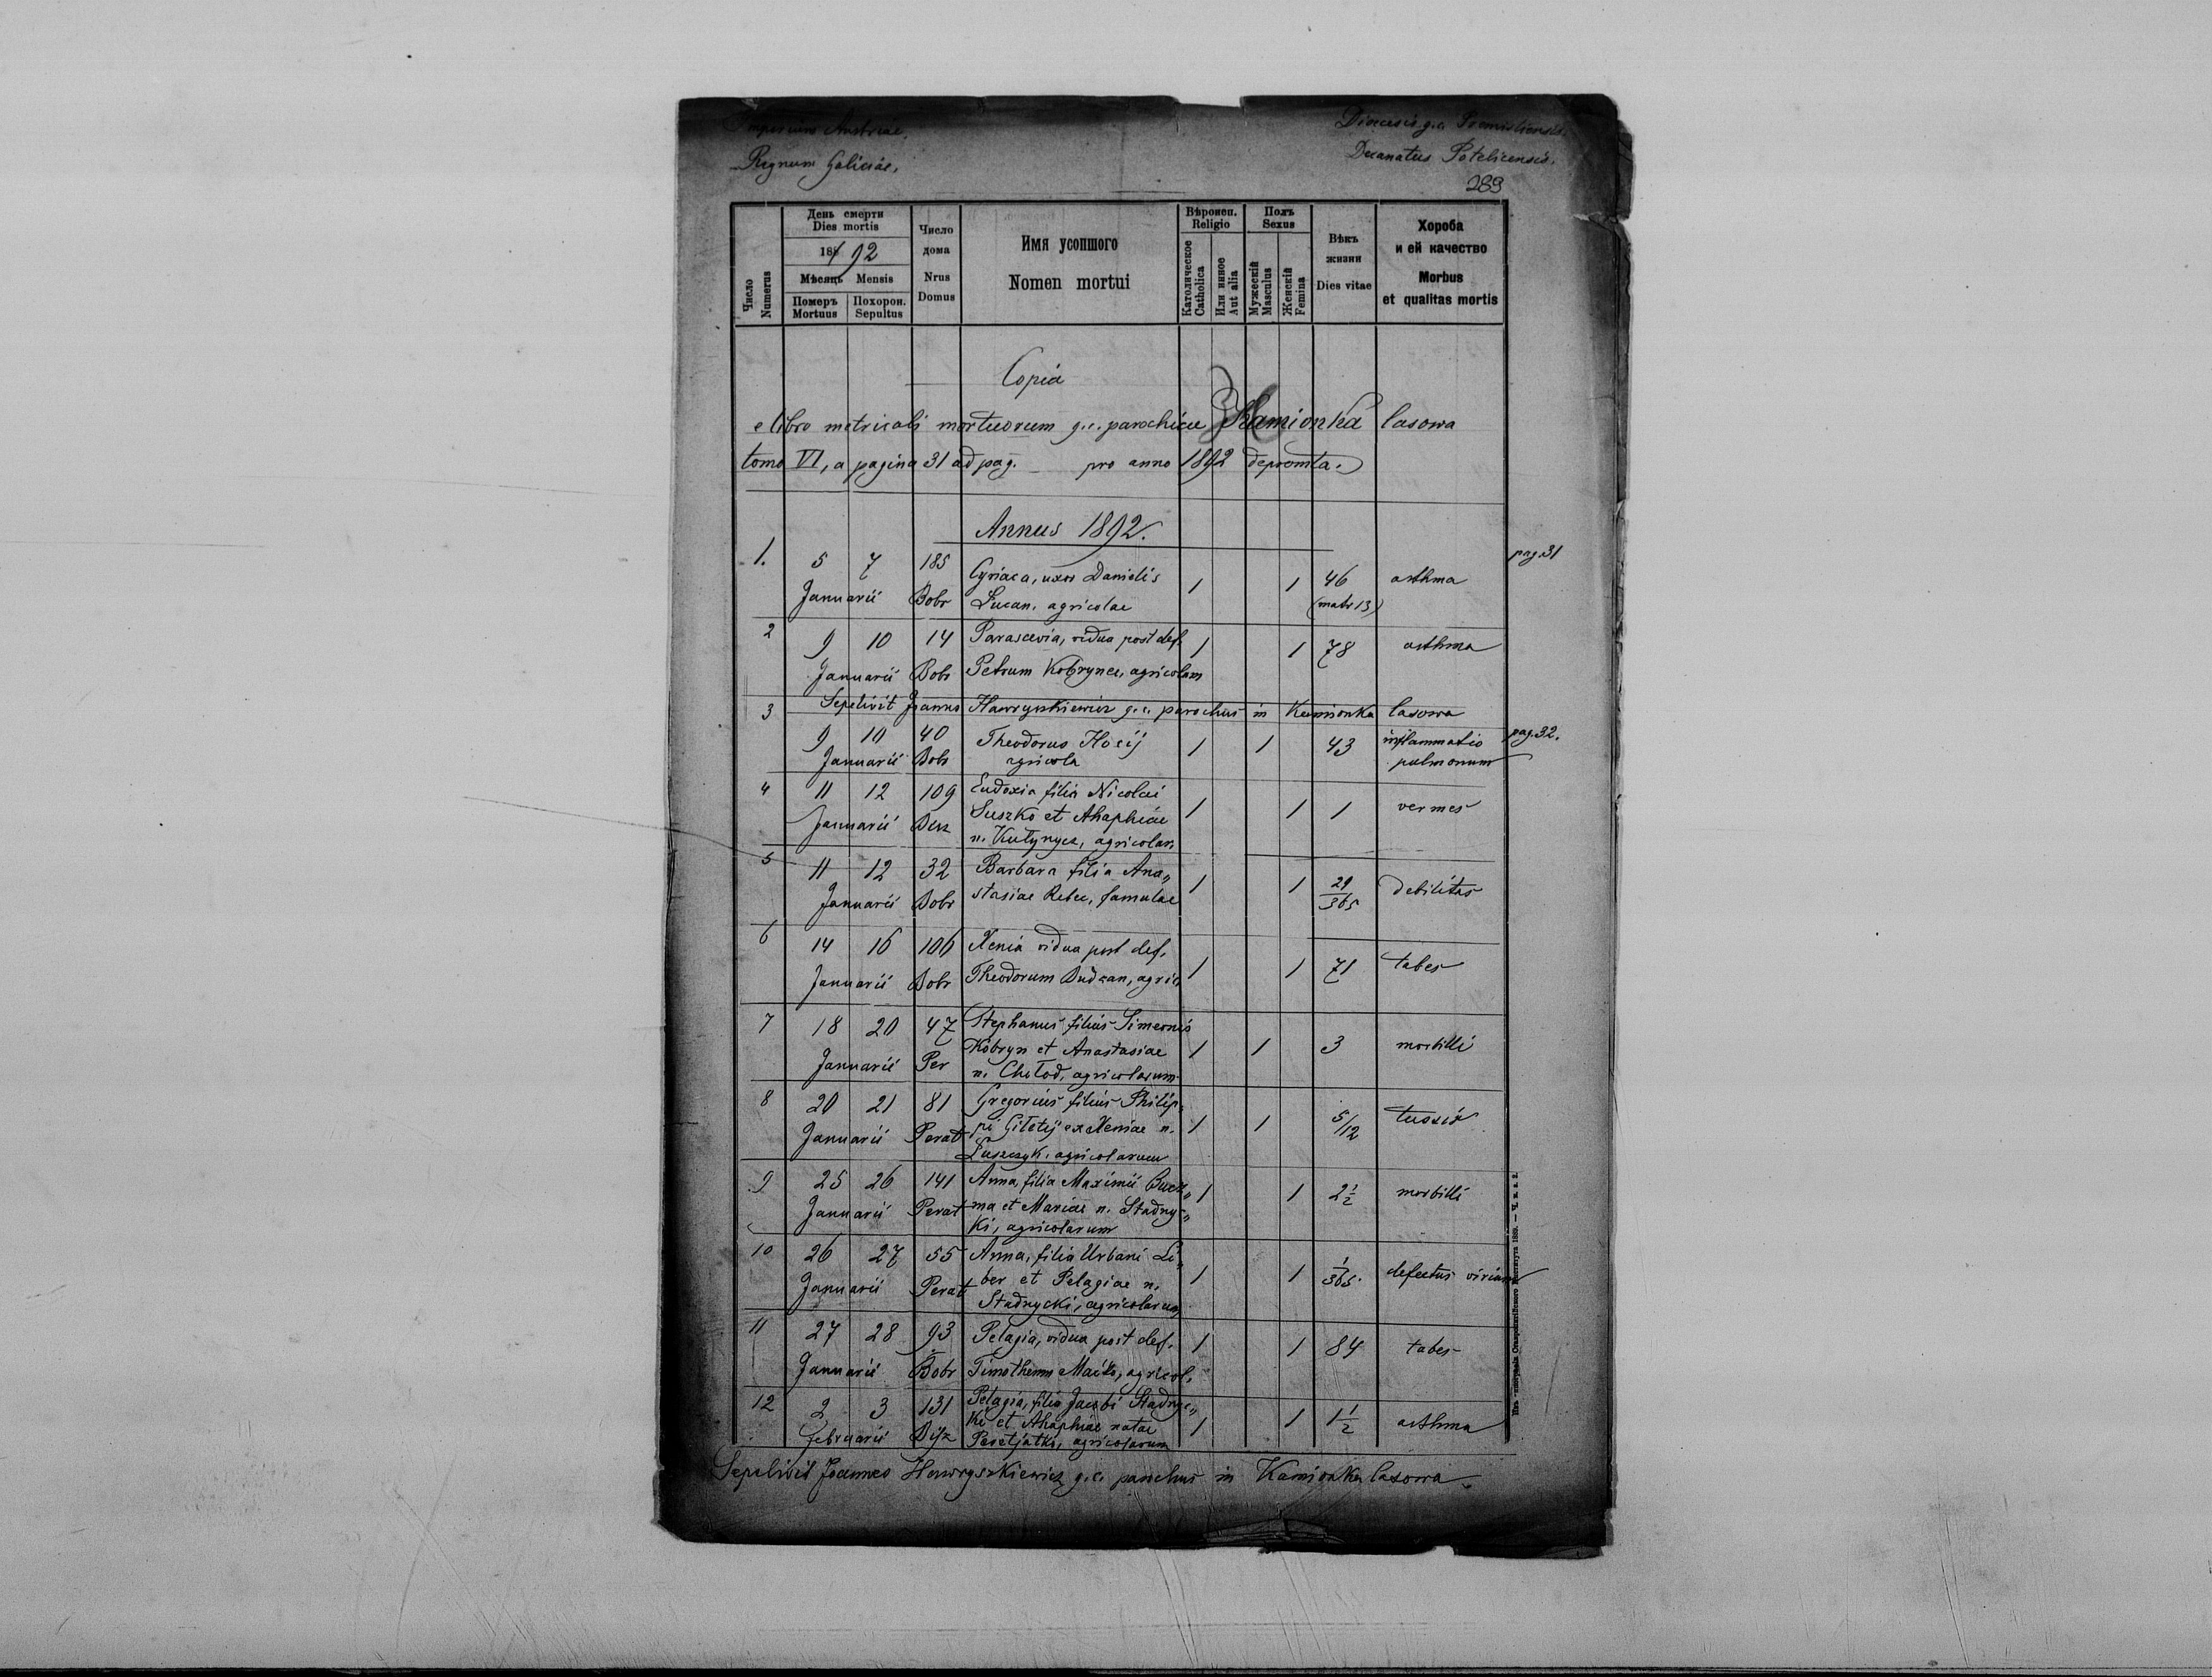 Imperium Austriae.
Regnum Galiciae.
Diocesis g.c. Premisliensis.
Decanatus Potelicensis.
289
Число
Numerus
День смерти
Dies mortis
1892
Мѣсяць Mensis
Померъ
Mortuus
Похорон.
Sepultus
Число
дома
Nrus
Domus
Имя усопшого
Nomen mortui
Вѣроисп.
Religio
Католическое
Catholica
Или инное
Aut alia
Полъ
Sexus
Мужескій
Masculus
Женскій
Femina
Вѣкъ
жизни
Dies vitae
Хороба
и ей качество
Morbus
et qualitas mortis
Copia
e libro metricali mortuorum g.c. parochiae Kamionka lasowa
tomo VI, a pagina 31 ad pag. pro anno 1892 depromta.
Annus 1892.
pag. 31
1. 5 7 185 Cyriaca, uxor Danielis 1 1 46 asthma
Januarii Bobr Lucan, agricolae (matr 13)
2 9 10 14 Parascevia, vidua post def. 1 1 78 asthma
Januarii Bobr Petrum Kobrynec, agricolam
Sepelivit Joannes Hawryszkiewicz g.c. parochus in Kamionka lasowa
3 9 10 40 Theodorus 1 1 43 inflammatio pag. 32.
Januarii Bobr agricola pulmonum
4 11 12 109 Eudoxia filia Nicolai
Januarii Suszko et Ahaphiae 1 1 1 vermes
n. Kutynycz, agricolar.
5 11 12 32 Barbara filia Ana„ 1 1 29/365 debilitas
Januarii Bobr stasiae Rebec, famulae
6 14 16 106 Xenia vidua post def. 1 1 71 tabes
Januarii Bobr Theodorum agric.
7 18 20 47 Stephanus filius Simeonis
Januarii Per Kobryn et Anastasiae 1 1 3 morbilli
n. Chołod, agricolarum
8 20 21 81 Gregorius filius Philip„
Januarii Perat pi Giletij et Xeniae n. 1 1 5/12 tussis
Łuszczyk, agricolarum
9 25 26 141 Anna, filia Maximii Bucz„ 1 1 2 1/2 morbilli
Januarii Perat ma et Mariae n. Stadnyc„
ki, agricolarum
10 26 27 55 Anna, filia Urbani Li„
Januarii Perat ber et Pelagiae n. 1 1 1/365 defectus virium
Stadnycki, agricolarum
11 27 28 93 Pelagia, vidua post def. 1 1 84 tabes
Januarii Bobr Timotheum Maćko, agricol.
12 2 3 131 Pelagia, filia Jacobi Stadnyc„
februarii ki et Ahaphiae natae 1 1 1 1/2 asthma
Peretjatko, agricolarum
Sepelivit Joannes Hawryszkiewicz g.c. parochus in Kamionka lasowa